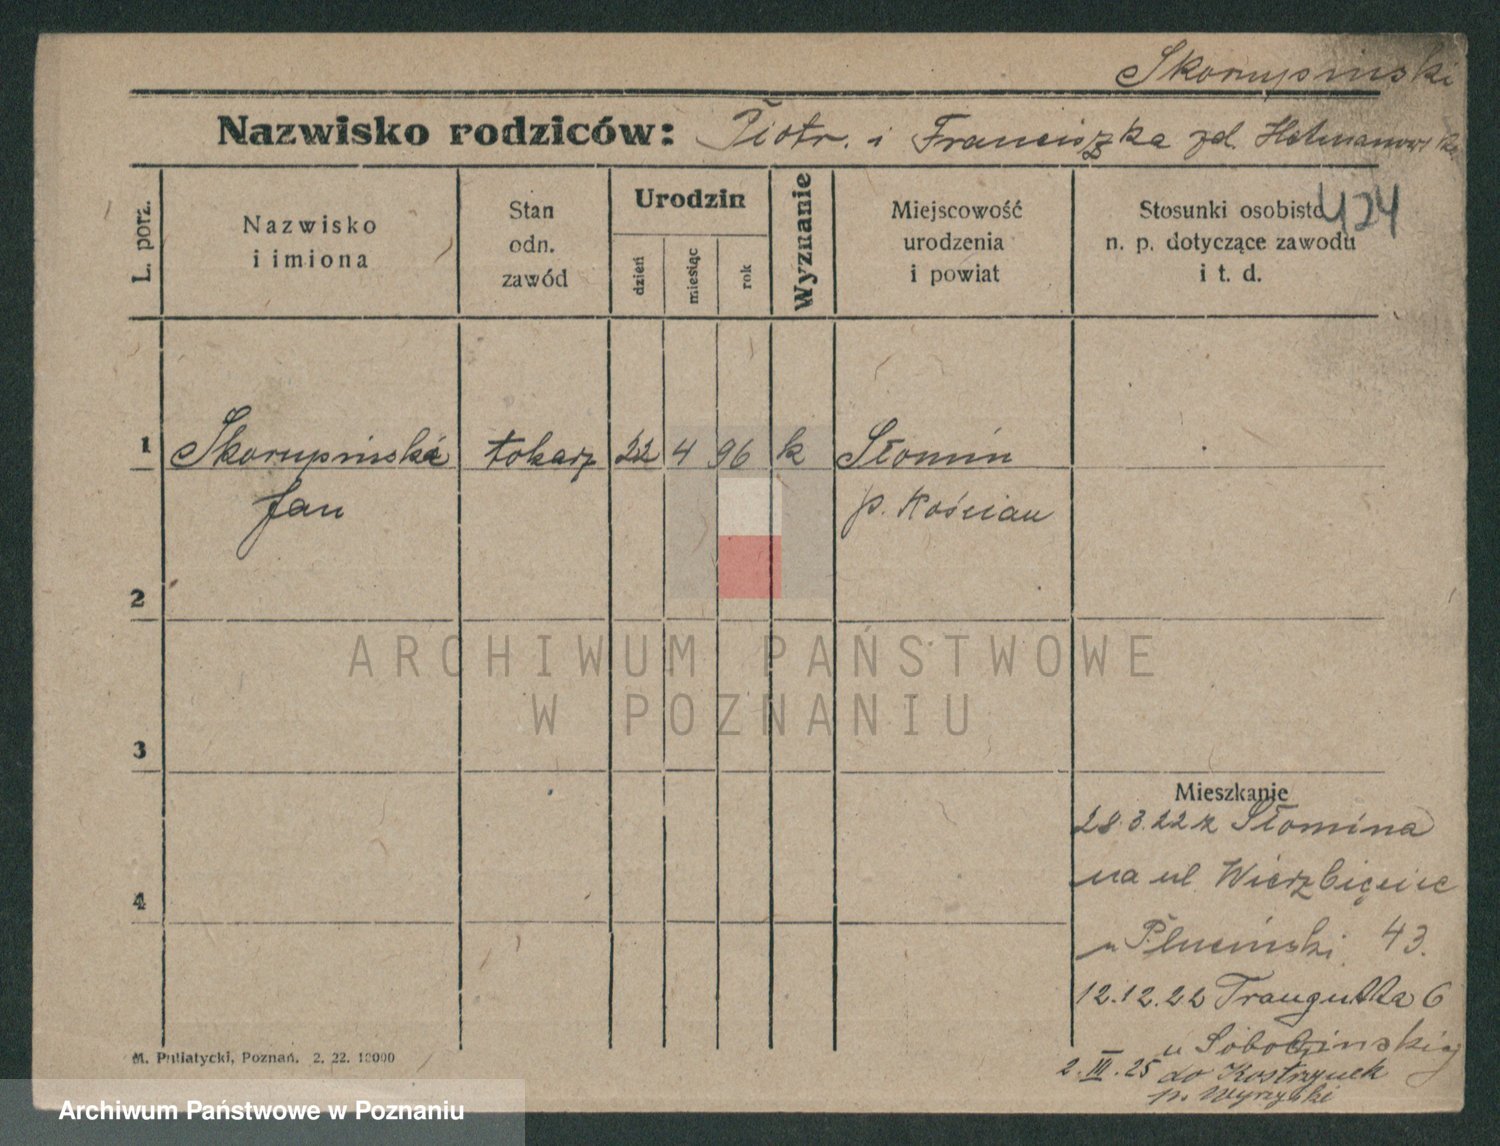 Skorupiński
Nazwisko rodziców: Piotr. i Franciszka zd. Hetmanowska
L. porz.
Nazwisko
i imiona
Stan
odn.
zawód
Urodzin
dzień
miesiąc
rok
Wyznanie
Miejscowość
urodzenia
i powiat
Stosunki osobiste
n. p. dotyczące zawodu
i t. d.
424
1 Skorupiński tokarz 22 4 96 k Słonin
Jan p. Kościan
2
ARCHIWUM PAŃSTWOWE
W POZNANIU
3
Mieszkanie
28.3.22 z Słonina
na ul Wierzbięcic
u Pluciński 43.
4
12.12.22 Traugutta 6
u
2.III.25 do
p. Wyrzyski
M. Putiatycki, Poznań. 2. 22. 10000
Archiwum Państwowe w Poznaniu